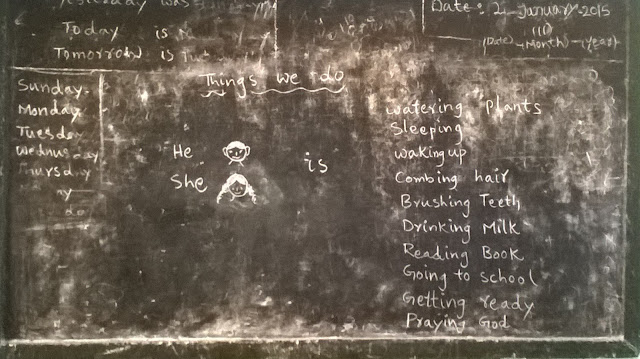 Yesterday was
Today is
Tomorrow is
Date: 2 January 2015
(Date) (Month) (Year)
Things we do
Sunday
Monday
Tuesday
Wednusday
Thursday
He
She
is
watering plants
Sleeping
waking up
Combing hair
Brushing Teeth
Drinking Milk
Reading Book
Going to school
Getting ready
Praying God